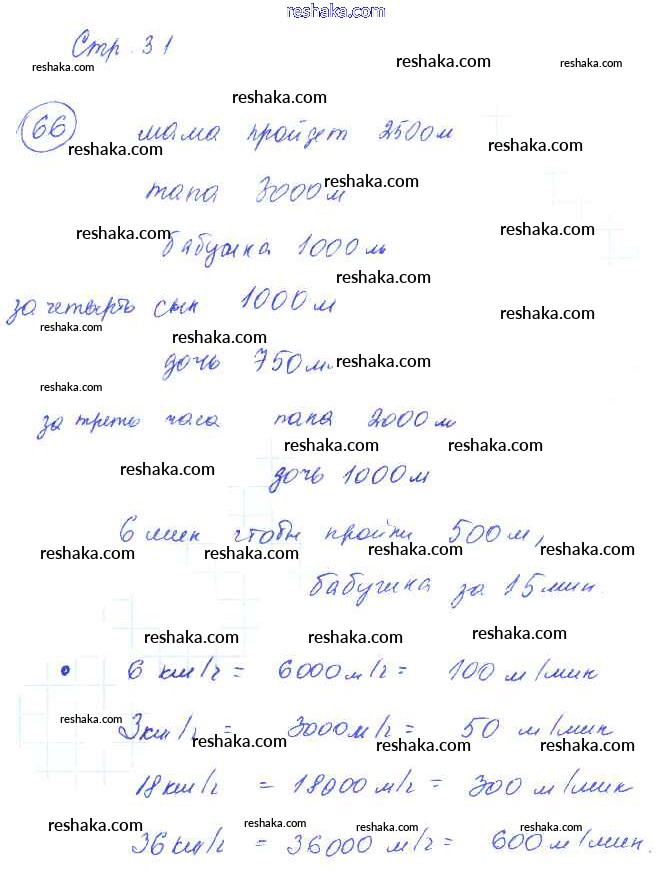 reshaka.com
Стр. 31
reshaka.com reshaka.com reshaka.com
reshaka.com
66 мама пройдет 2500 м
reshaka.com reshaka.com
папа 3000 м
reshaka.com
reshaka.com reshaka.com
бабушка 1000 м
reshaka.com
за четверть сын 1000 м
reshaka.com
reshaka.com reshaka.com
дочь 750 м.
reshaka.com
reshaka.com
за треть часа папа 2000 м
reshaka.com reshaka.com
reshaka.com
дочь 1000 м
6 мин чтобы пройти 500 м,
reshaka.com reshaka.com reshaka.com reshaka.com
бабушка за 15 мин.
reshaka.com reshaka.com reshaka.com
6 км/ч = 6000 м/ч = 100 м/мин
reshaka.com
3 км/ч = 3000 м/ч = 50 м/мин
reshaka.com reshaka.com reshaka.com
18 км/ч = 18000 м/ч = 300 м/мин
reshaka.com reshaka.com reshaka.com reshaka.com
36 км/ч = 36000 м/ч = 600 м/мин.